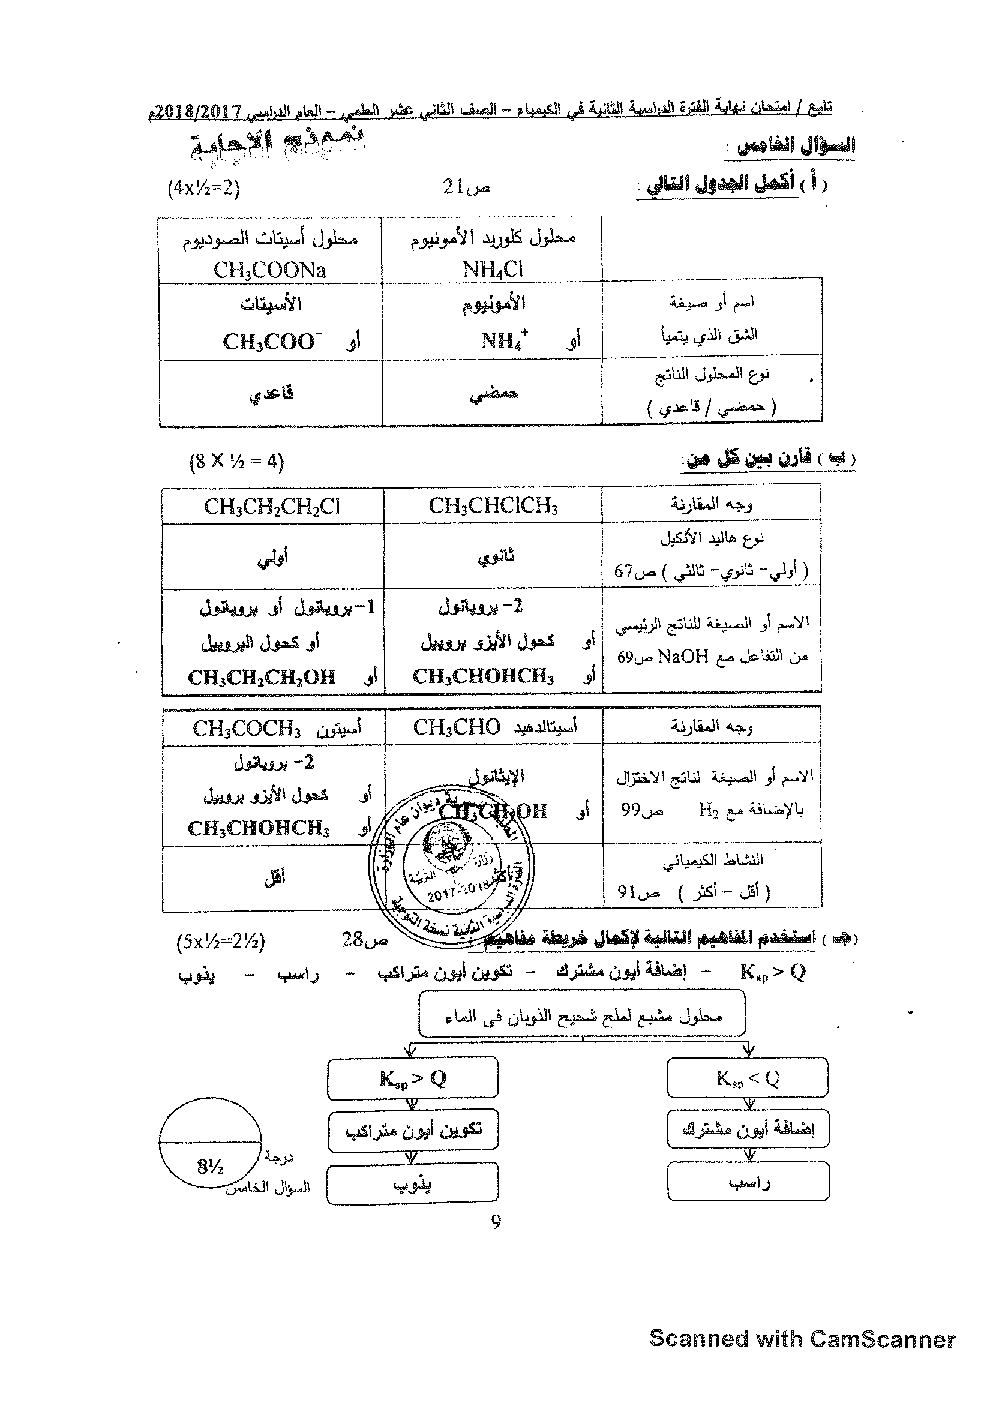 تابع / امتحان نهاية الفترة الدراسية الثانية في الكيمياء – الصف الثاني عشر العلمي – العام الدراسي 2018/2017م
نموذج الإجابة
السؤال الخامس :
( أ ) أكمل الجدول التالي : ص21 (4x½=2)
محلول كلوريد الأمونيوم محلول أسيتات الصوديوم
NH₄Cl CH₃COONa
اسم أو صيغة الأمونيوم الأسيتات
الشق الذي يتميأ أو NH₄⁺ أو CH₃COO⁻
نوع المحلول الناتج
( حمضي / قاعدي ) حمضي قاعدي
( ب ) قارن بين كل من: (8 X ½ = 4)
وجه المقارنة CH₃CHClCH₃ CH₃CH₂CH₂Cl
نوع هاليد الألكيل
( أولي – ثانوي – ثالثي ) ص67 ثانوي أولي
الاسم أو الصيغة للناتج الرئيسي 2- بروبانول 1-بروبانول أو بروبانول
من التفاعل مع NaOH ص69 أو كحول الأيزو بروبيل أو كحول البروبيل
أو CH₃CHOHCH₃ أو CH₃CH₂CH₂OH
وجه المقارنة أسيتالدهيد CH₃CHO أسيتون CH₃COCH₃
الاسم أو الصيغة لناتج الاختزال الإيثانول 2- بروبانول
بالإضافة مع H₂ ص99 أو CH₃CH₂OH أو كحول الأيزو بروبيل
أو CH₃CHOHCH₃
النشاط الكيميائي
( أقل – أكثر ) ص91 أكثر أقل
وزارة التربية
2017-2018
(جـ ) استخدم المفاهيم التالية لإكمال خريطة مفاهيم : ص28 (5x½=2½)
Kₛₚ > Q – إضافة أيون مشترك – تكوين أيون متراكب – راسب – يذوب
محلول مشبع لملح شحيح الذوبان في الماء
Kₛₚ < Q Kₛₚ > Q
إضافة أيون مشترك تكوين أيون متراكب
راسب يذوب
8½
درجة
السؤال الخامس
9
Scanned with CamScanner